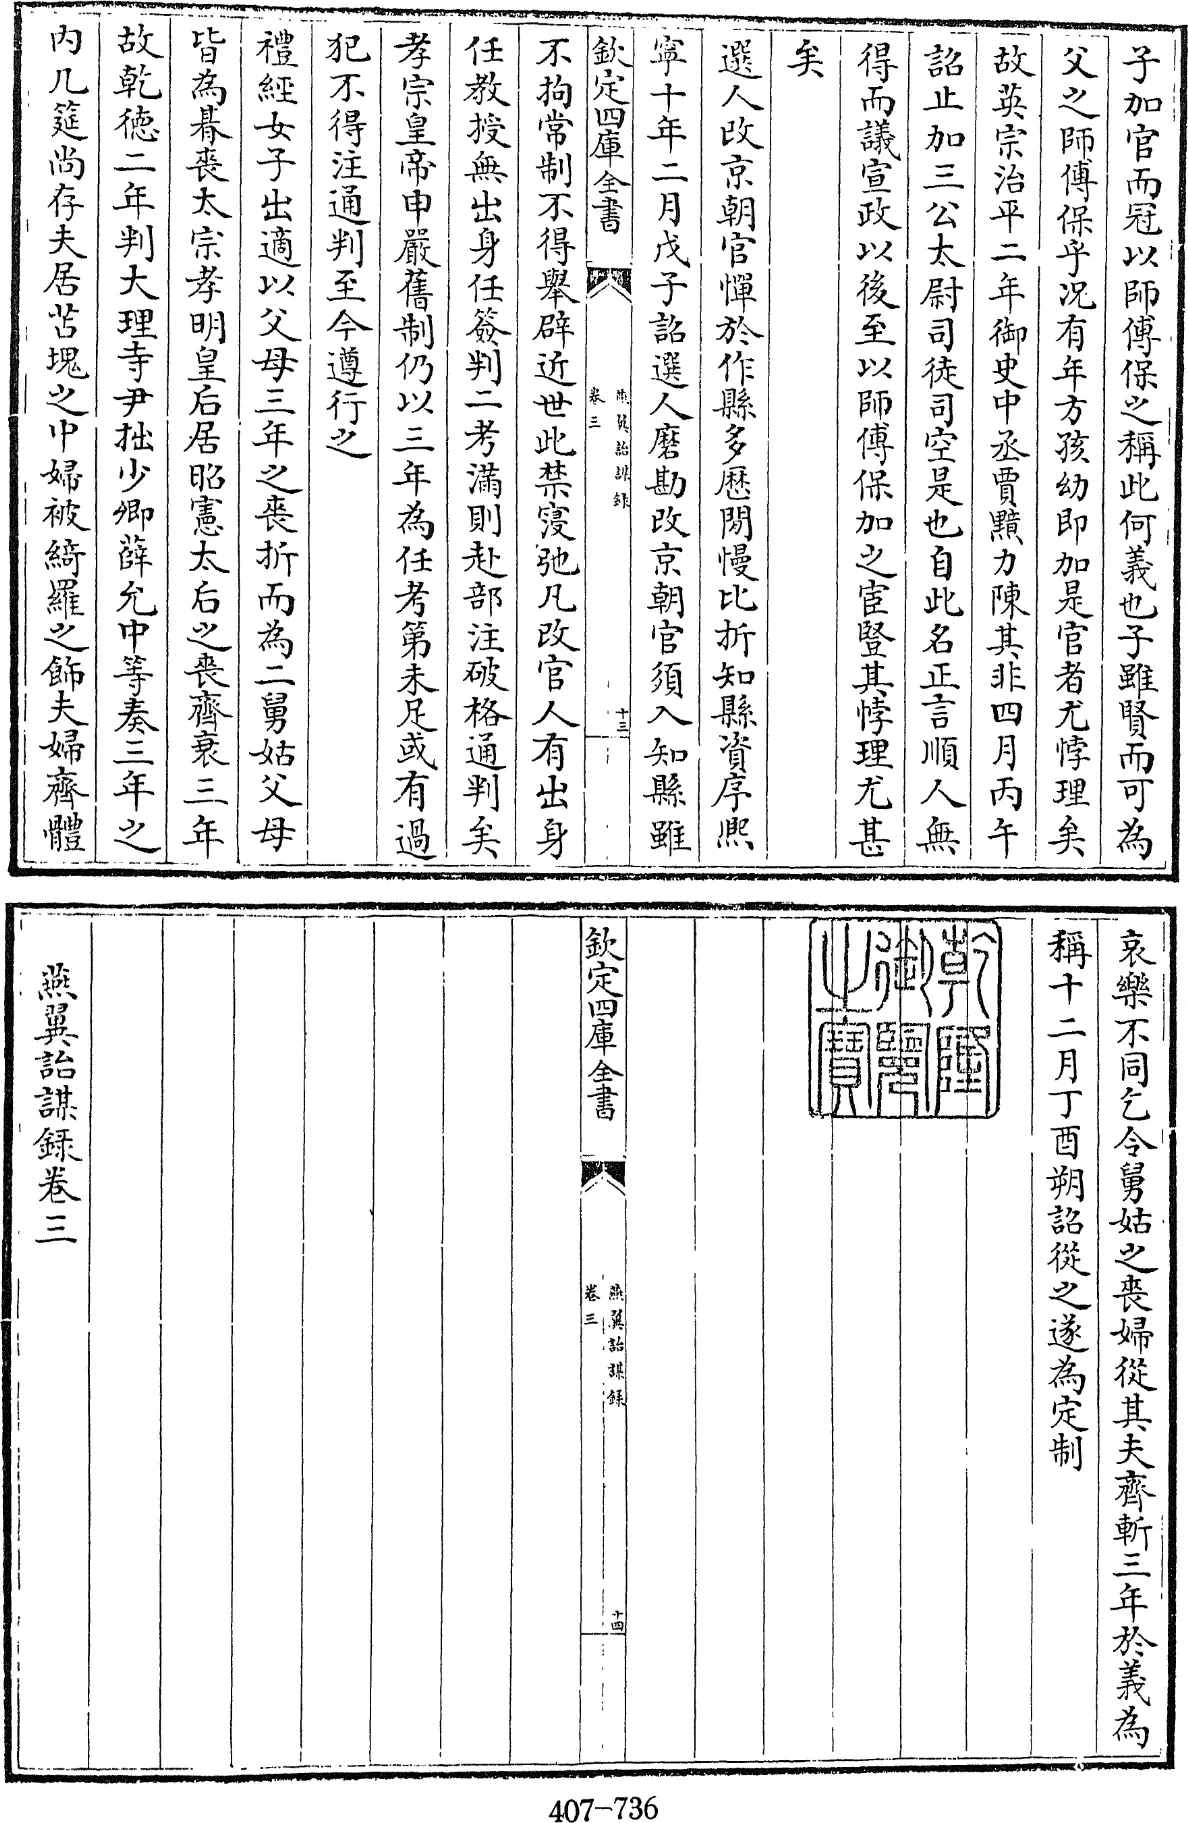 子加官而冠以師傅保之稱此何義也子雖賢而可為
父之師傅保乎况有年方孩幼即加是官者尤悖理矣
故英宗治平二年御史中丞賈黯力陳其非四月丙午
詔止加三公太尉司徒司空是也自此名正言順人無
得而議宣政以後至以師傅保加之宦豎其悖理尤甚
矣
選人改京朝官憚於作縣多歴閒慢比折知縣資序熈
寧十年二月戊子詔選人磨勘改京朝官須入知縣雖
欽定四庫全書
燕翼詒謀録
卷三
十三
不拘常制不得舉辟近世此禁寖弛凡改官人有出身
任教授無出身任簽判二考滿則赴部注破格通判矣
孝宗皇帝申嚴舊制仍以三年為任考第未足或有過
犯不得注通判至今遵行之
禮經女子出適以父母三年之喪折而為二舅姑父母
皆為朞喪太宗孝明皇后居昭憲太后之喪齊衰三年
故乾德二年判大理寺尹拙少卿薛允中等奏三年之
内几筵尚存夫居苫塊之中婦被綺羅之飾夫婦齊體
哀樂不同乞令舅姑之喪婦從其夫齊斬三年於義為
稱十二月丁酉朔詔從之遂為定制
乾隆御覽之寶
欽定四庫全書
燕翼詒謀録
卷三
十四
燕翼詒謀録卷三
407-736